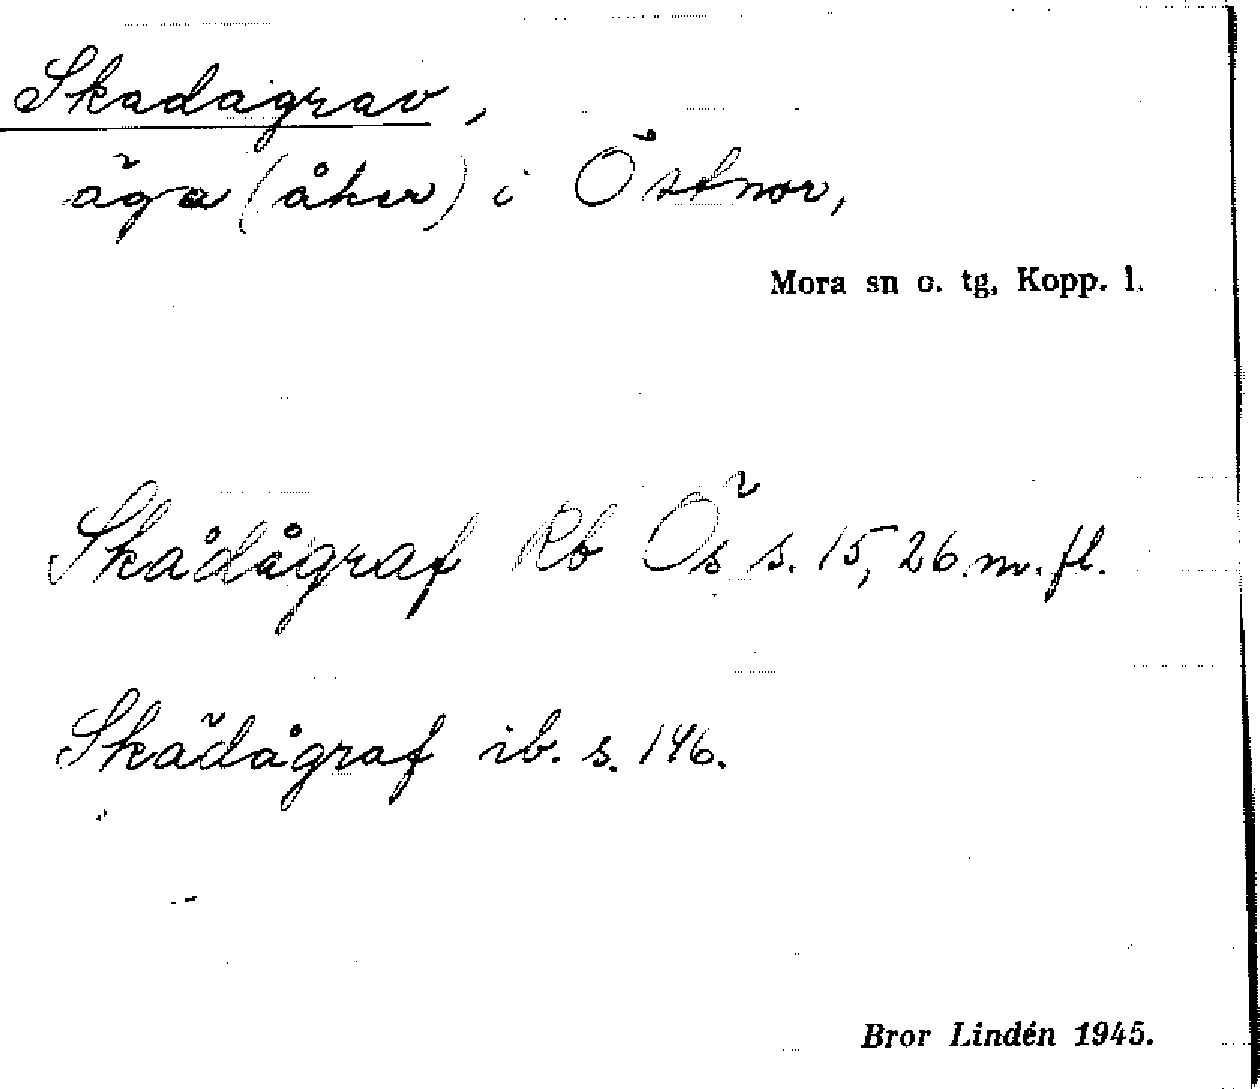 Skadagrav,
äga (åker) i Östnor,
Mora sn o. tg, Kopp. l.
Skådågraf Rb Ös s. 15, 26 m. fl.
Skädågraf ib. s. 146.
Bror Lindén 1945.